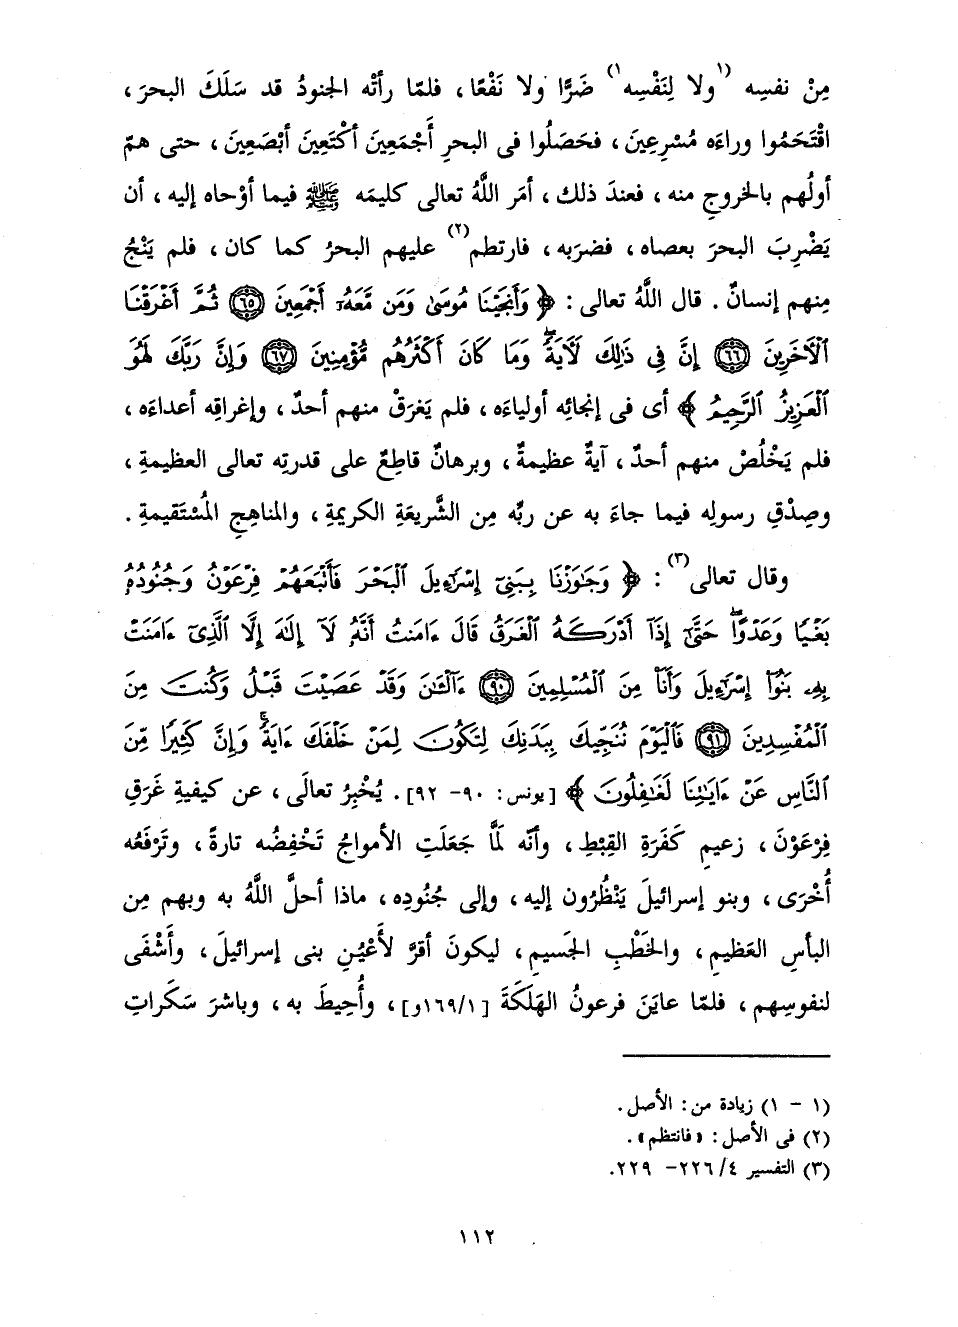 مِنْ نفسِه (١ولا لِنَفْسِه١) ضَرًّا ولا نَفْعًا ، فلمّا رأتْه الجنودُ قد سَلَكَ البحرَ ،
اقْتَحَمُوا وراءَه مُسْرِعِينَ ، فحَصَلُوا فى البحرِ أَجْمَعِينَ أكْتَعِينَ أبْصَعِينَ ، حتى همّ
أولُهم بالخروجِ منه ، فعندَ ذلك ، أمَر اللَّهُ تعالى كليمَه ﷺ فيما أوْحاه إليه ، أن
يَضْرِبَ البحرَ بعصاه ، فضرَبه ، فارتطم(٢) عليهم البحرُ كما كان ، فلم يَنْجُ
مِنهم إنسانٌ . قال اللَّهُ تعالى : ﴿ وَأَنجَيْنَا مُوسَىٰ وَمَن مَّعَهُۥٓ أَجْمَعِينَ ﴿٦٥﴾ ثُمَّ أَغْرَقْنَا
ٱلْأٓخَرِينَ ﴿٦٦﴾ إِنَّ فِى ذَٰلِكَ لَأٓيَةًۖ وَمَا كَانَ أَكْثَرُهُم مُّؤْمِنِينَ ﴿٦٧﴾ وَإِنَّ رَبَّكَ لَهُوَ
ٱلْعَزِيزُ ٱلرَّحِيمُ ﴾ أى فى إنجائِه أولياءَه ، فلم يَغرَقْ منهم أحدٌ ، وإغراقِه أعداءَه ،
فلم يَخْلُصْ منهم أحدٌ ، آيةٌ عظيمةٌ ، وبرهانٌ قاطِعٌ على قدرتِه تعالى العظيمةِ ،
وصِدْقِ رسولِه فيما جاءَ به عن ربِّه مِن الشَّريعَةِ الكريمةِ ، والمناهِجِ المُسْتَقيمةِ .
وقال تعالى(٣) : ﴿ وَجَٰوَزْنَا بِبَنِىٓ إِسْرَٰٓءِيلَ ٱلْبَحْرَ فَأَتْبَعَهُمْ فِرْعَوْنُ وَجُنُودُهُۥ
بَغْيًا وَعَدْوًاۖ حَتَّىٰٓ إِذَآ أَدْرَكَهُ ٱلْغَرَقُ قَالَ ءَامَنتُ أَنَّهُۥ لَآ إِلَٰهَ إِلَّا ٱلَّذِىٓ ءَامَنَتْ
بِهِۦ بَنُوٓا۟ إِسْرَٰٓءِيلَ وَأَنَا۠ مِنَ ٱلْمُسْلِمِينَ ﴿٩٠﴾ ءَآلْـَٰٔنَ وَقَدْ عَصَيْتَ قَبْلُ وَكُنتَ مِنَ
ٱلْمُفْسِدِينَ ﴿٩١﴾ فَٱلْيَوْمَ نُنَجِّيكَ بِبَدَنِكَ لِتَكُونَ لِمَنْ خَلْفَكَ ءَايَةًۚ وَإِنَّ كَثِيرًا مِّنَ
ٱلنَّاسِ عَنْ ءَايَٰتِنَا لَغَٰفِلُونَ ﴾ [يونس: ٩٠- ٩٢]. يُخْبِرُ تعالَى ، عن كيفيةِ غَرَقِ
فِرْعَوْنَ ، زعيمِ كَفَرَةِ القِبْطِ ، وأنّه لَمَّا جَعَلَتِ الأمواجُ تَخْفِضُه تارةً ، وتَرْفَعُه
أُخْرَى ، وبنو إسرائيلَ يَنْظُرُون إليه ، وإلى جُنُودِه ، ماذا أحلَّ اللَّهُ به وبهم مِن
البأسِ العَظيمِ ، والخَطْبِ الجَسيمِ ، ليكونَ أقرَّ لأَعْيُنِ بنى إسرائيلَ ، وأَشْفَى
لنفوسِهم ، فلمّا عايَنَ فرعونُ الهَلَكَةَ [١/ ١٦٩و] ، وأُحِيطَ به ، وباشرَ سَكَراتِ
(١ - ١) زيادة من : الأصل .
(٢) فى الأصل : « فانتظم » .
(٣) التفسير ٤/ ٢٢٦- ٢٢٩.
١١٢